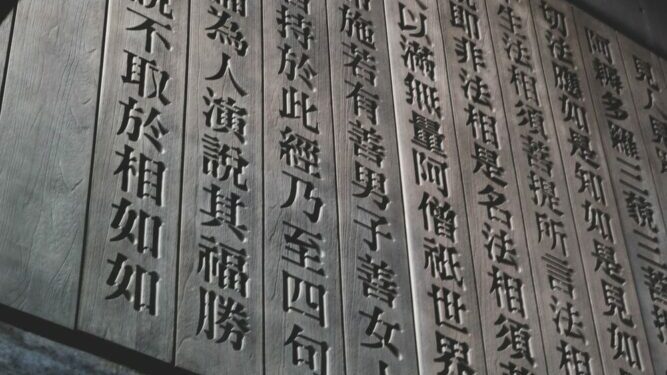 見人見
阿耨多羅三藐三菩
切法應如是知如是見如
生法相須菩提所言法相
即非法相是名法相須
以滿無量阿僧祇世界
施若有善男子善女
持於此經乃至四句
為人演說其福勝
不取於相如如